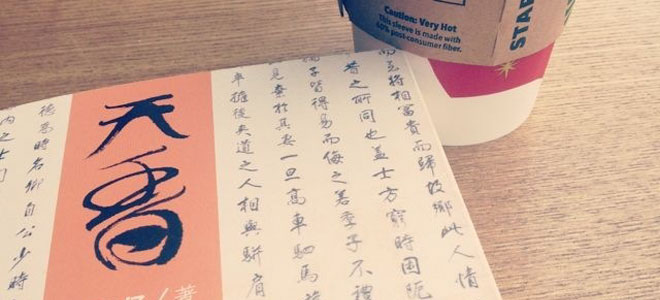 Caution: Very Hot
This sleeve is made with
60% post-consumer fiber.
STAR
而至將相富貴而歸故鄉此人情
昔之所同也盖士方窮時困阨
孺子皆得易而侮之若季子不禮
見棄於其妻一旦高車駟馬
卒擁後夾道之人相與駢肩
天香
著
德為時名卿自公少時
內之士